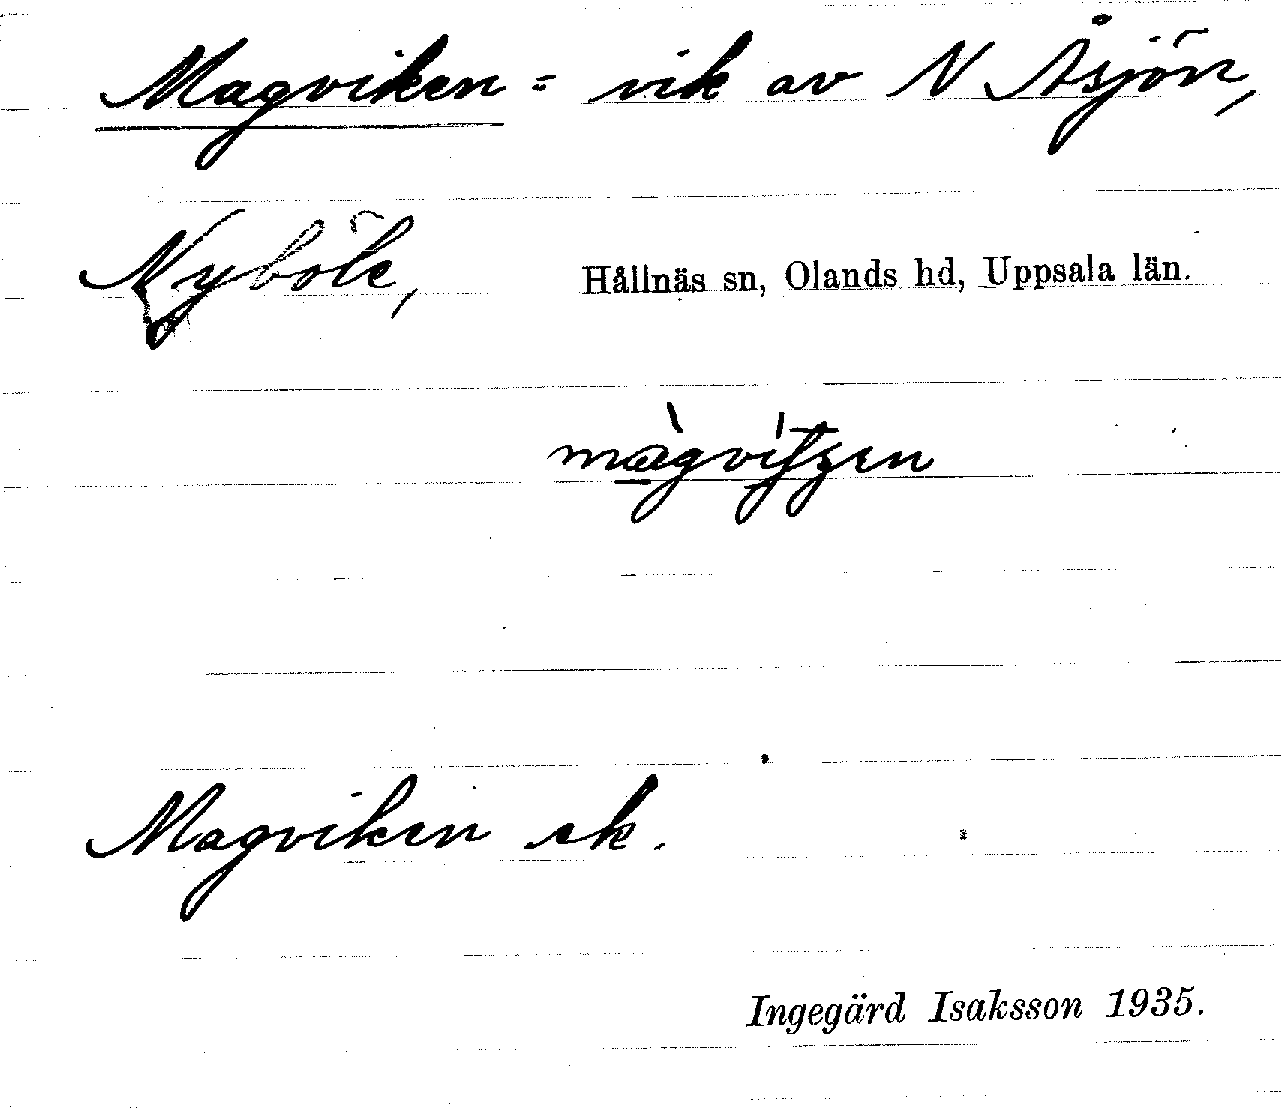 Magviken = vik av N Åsjön,
Nyböle, Hållnäs sn, Olands hd, Uppsala län.
Magviken ek.
Ingegärd Isaksson 1935.